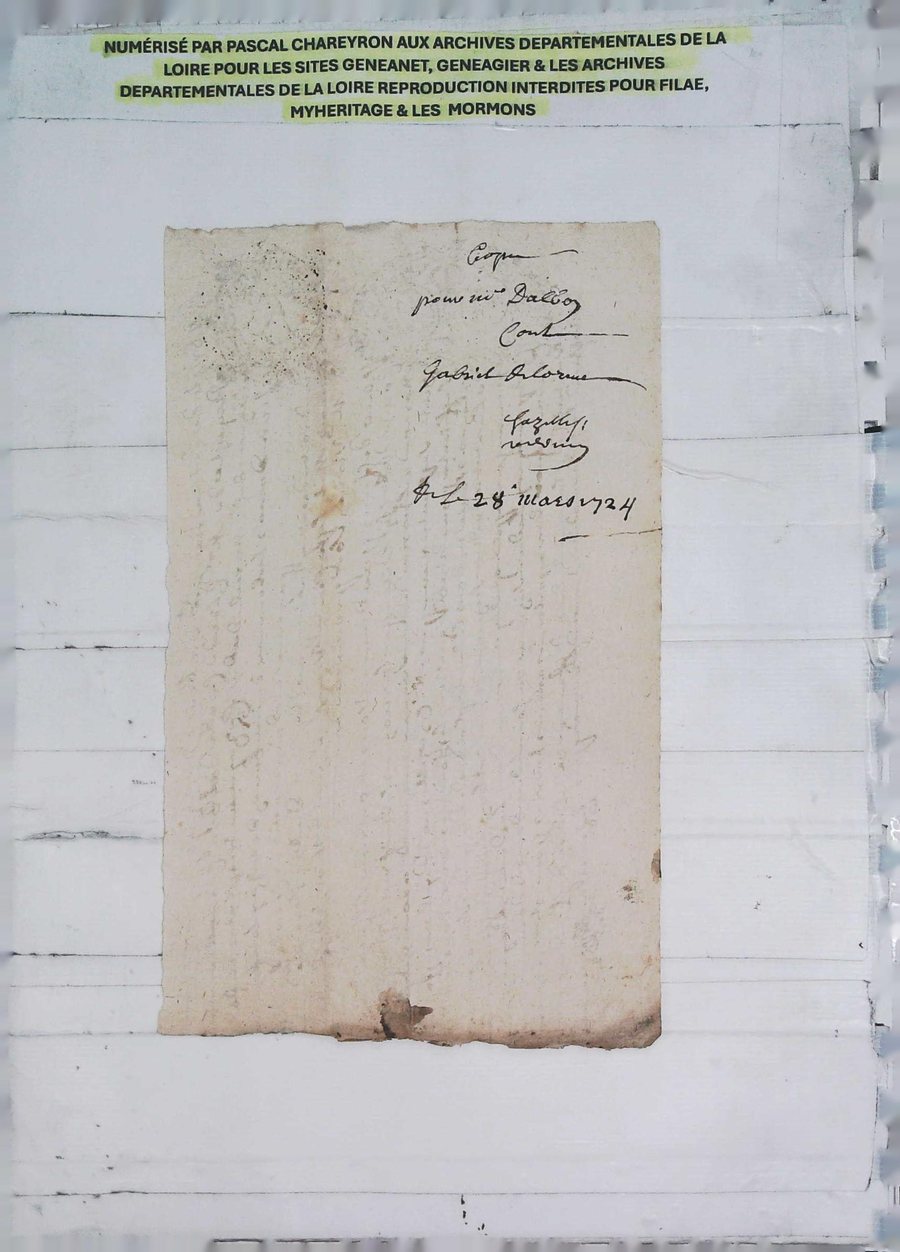 NUMÉRISÉ PAR PASCAL CHAREYRON AUX ARCHIVES DEPARTEMENTALES DE LA
LOIRE POUR LES SITES GENEANET, GENEAGIER & LES ARCHIVES
DEPARTEMENTALES DE LA LOIRE REPRODUCTION INTERDITES POUR FILAE,
MYHERITAGE & LES MORMONS
Copie
pour mre Dalbos
Cont
Gabriel Delorme
Du 28e mars 1724